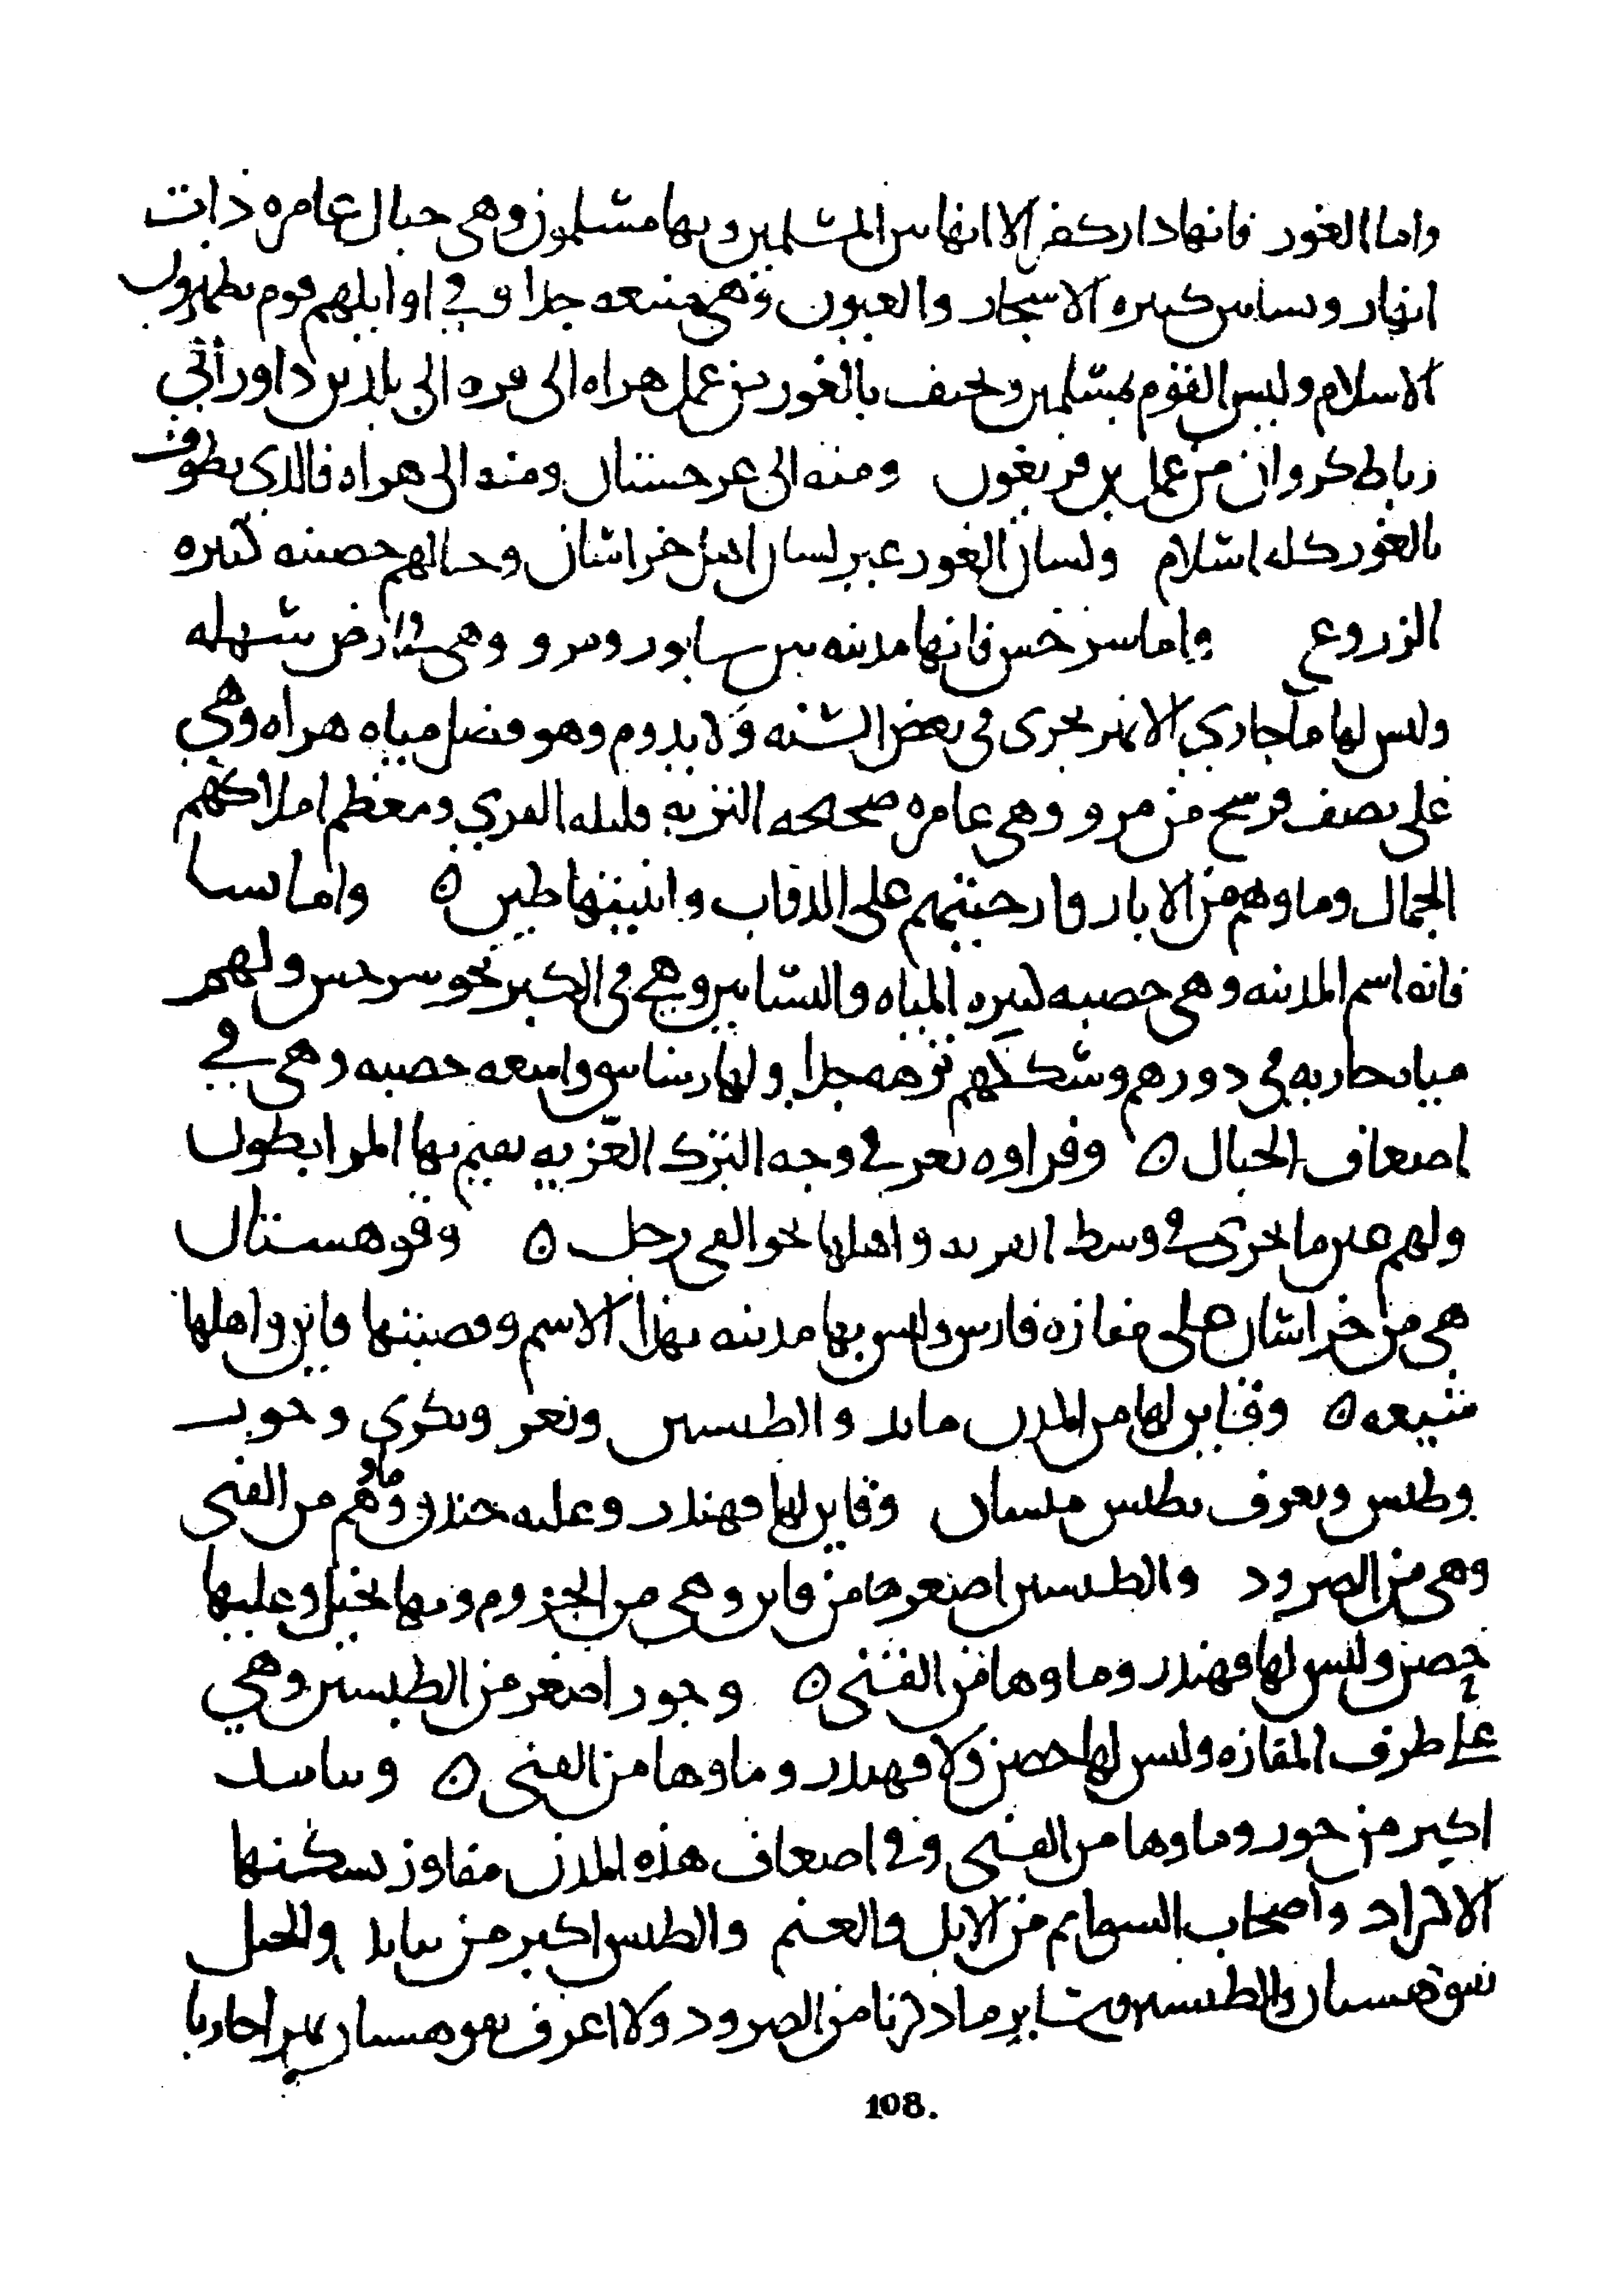 واما الغور فانها دار كفر الا انها بين المسلمين وبها مسلمون وهي جبال عامره ذات
انهار وبساتين كثيره الاشجار والعيون وهي منيعه جدا وفي اوايلهم قوم يظهرون
الاسلام وليس القوم بمسلمين ويحتف بالغور من عمل هراه الى فره الى بلدين داور الى
رباط كروان من عمل بن فريغون ومنه الى غرجستان ومنه الى هراه فالذي يطوف
بالغور كله اسلام ولسان الغور غير لسان اهل خراسان وجبالهم خصبه كثيره
الزروع واما سرخس فانها مدينه بين نيسابور ومرو وهي في ارض سهله
وليس لها ما جاري الا نهر يجري في بعض السنه ولا يدوم وهو فضل مياه هراه وهي
على نصف فرسخ من مرو وهي عامره صحيحه التربه قليله القري ومعظم املاكهم
الجمال وماوهم من الابار وارحيتهم على الدواب وابنيتها طين ٥ واما نسا
فانه اسم المدينه وهي خصبه كثيره المياه والبساتين وهي في الكبر نحو سرخس ولهم
مياه جاريه في دورهم وسككهم نزهه جدا ولها رساتيق واسعه خصبه وهي في
اضعاف الجبال ٥ وفراوه ثغر في وجه الترك الغزيه يقيم بها المرابطون
ولهم عين ما تجري في وسط القريه واهلها نحو الفي رجل ٥ وقوهستان
هي من خراسان على مفازه فارس وليس بها مدينه بهذا الاسم وقصبتها قاين واهلها
شيعه ٥ وقاين لها من المدن ينابد والطبسين وتعر وبكري وخور
وطبس وتعرف بطبس مسينان وقاين لها قهندز وعليه خندق وماوهم من القنى
وهي من الصرود والطبسين اصغرها من قاين وهي من الجروم وبها نخيل وعليها
حصن وليس لها قهندز وماوها من القنى ٥ وخور اصغر من الطبسين وهي
على طرف المفازه وليس لها حصن ولا قهندز وماوها من القنى ٥ وينابد
اكبر من خور وماوها من القنى وفي اضعاف هذه المدن مفاوز يسكنها
الاكراد واصحاب السوايم من الابل والغنم والطبس اكبر من ينابد والنخيل
بقوهستان والطبسين وساير ما ذكرنا من الصرود ولا اعرف بقوهستان نهرا جاريا
108.